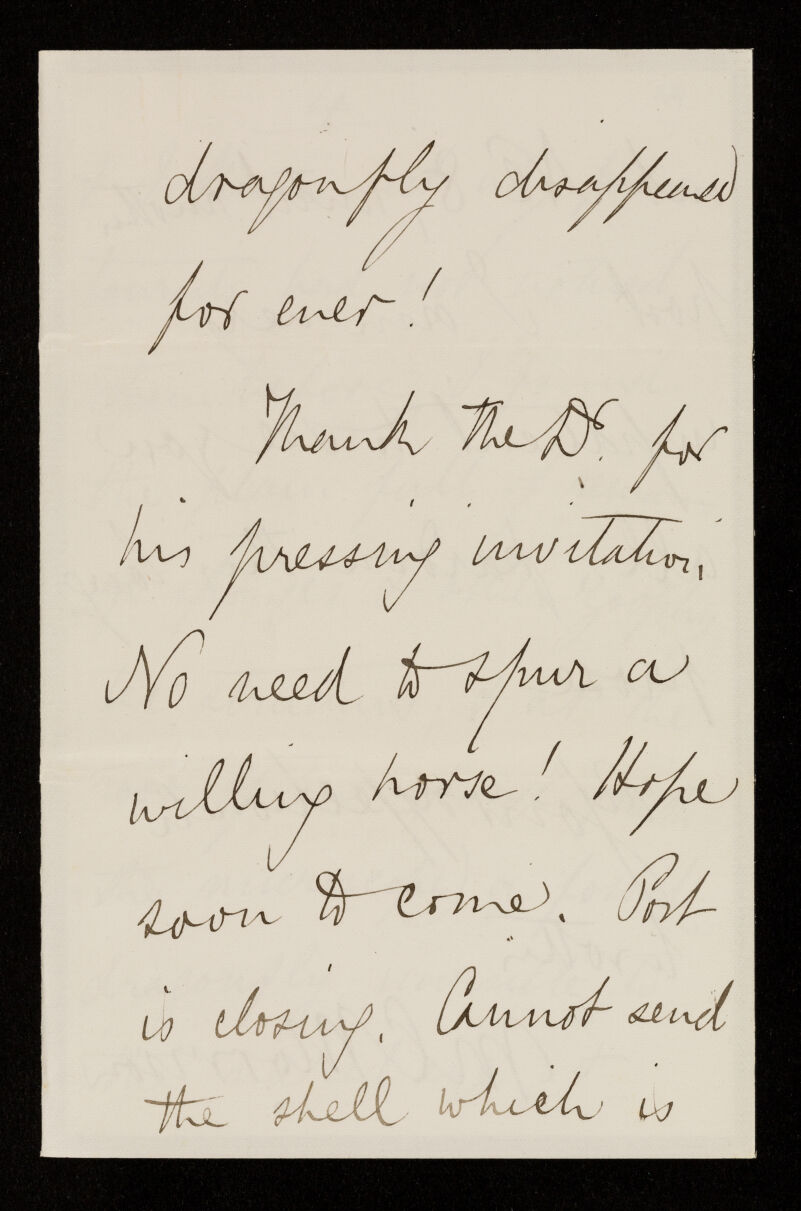 dragonfly disappeared
for ever!
Thank the Dr. for
his pressing invitation,
No need to spur a
willing horse! Hope
soon to come. Post
is closing. Cannot send
the shell which is